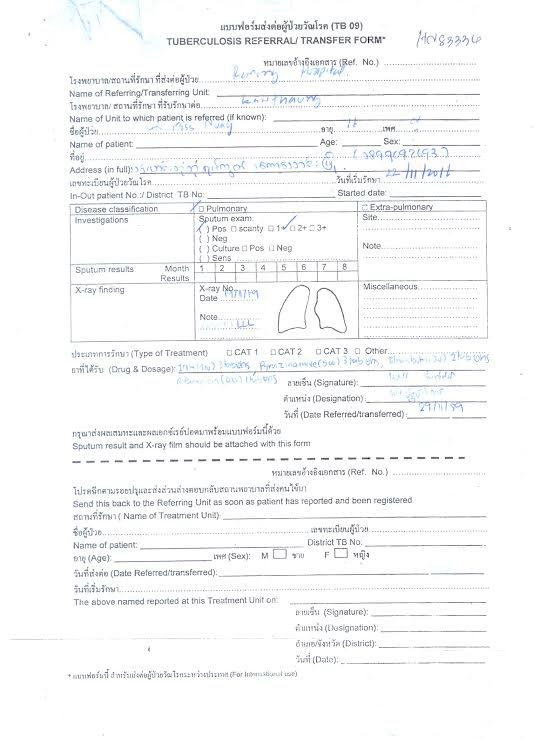 แบบฟอร์มส่งต่อผู้ป่วยวัณโรค (TB 09)
TUBERCULOSIS REFERRAL/ TRANSFER FORM*
HN83336
หมายเลขอ้างอิงเอกสาร (Ref. No.)
โรงพยาบาล/สถานที่รักษา ที่ส่งต่อผู้ป่วย Hospital
Name of Referring/Transferring Unit:
โรงพยาบาล/ สถานที่รักษา ที่รับรักษาต่อ
Name of Unit to which patient is referred (if known):
ชื่อผู้ป่วย อายุ 16 เพศ
Name of patient: Age: Sex:
ที่อยู่
Address (in full):
เลขทะเบียนผู้ป่วยวัณโรค วันที่เริ่มรักษา 22/11/2016
In-Out patient No.:/ District TB No: Started date:
Disease classification ☐ Pulmonary ☐ Extra-pulmonary
Investigations Sputum exam: Site
(/) Pos ☐ scanty ☐ 1+ ☐ 2+ ☐ 3+
( ) Neg Note
( ) Culture ☐ Pos ☐ Neg
( ) Sens
Sputum results Month 1 2 3 4 5 6 7 8
Results
X-ray finding X-ray No. Miscellaneous
Date
Note
LLL
ประเภทการรักษา (Type of Treatment) ☐ CAT 1 ☐ CAT 2 ☐ CAT 3 ☐ Other
ยาที่ได้รับ (Drug & Dosage):
ลายเซ็น (Signature):
ตำแหน่ง (Designation):
วันที่ (Date Referred/transferred): 29/11/59
กรุณาส่งผลเสมหะและผลเอกซ์เรย์ปอดมาพร้อมแบบฟอร์มนี้ด้วย
Sputum result and X-ray film should be attached with this form
หมายเลขอ้างอิงเอกสาร (Ref. No.)
โปรดฉีกตามรอยปรุและส่งส่วนล่างตอบกลับสถานพยาบาลที่ส่งคนไข้มา
Send this back to the Referring Unit as soon as patient has reported and been registered
สถานที่รักษา ( Name of Treatment Unit):
ชื่อผู้ป่วย เลขทะเบียนผู้ป่วย
Name of patient: District TB No:
อายุ (Age): เพศ (Sex): M ☐ ชาย F ☐ หญิง
วันที่ส่งต่อ (Date Referred/transferred):
วันที่เริ่มรักษา
The above named reported at this Treatment Unit on:
ลายเซ็น (Signature):
ตำแหน่ง (Designation):
อำเภอ/จังหวัด (District):
วันที่ (Date):
* แบบฟอร์มนี้ สำหรับส่งต่อผู้ป่วยวัณโรคระหว่างประเทศ (For International use)